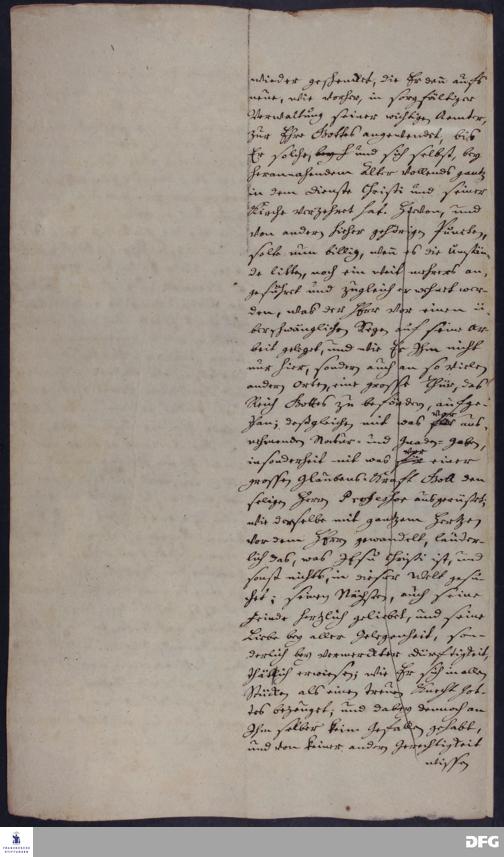 wieder geschencket, die Er denn aufs
neue, wie vorher, in sorgfältiger
Verwaltung seiner wichtigen Aemter,
zur Ehre Gottes angewendet, bis
Er solche, und sich selbst, bey
herannahendem Alter vollends gantz
in dem Dienste Christi und seiner
Kirche verzehret hat. Hievon, und
von andern hieher gehörigen Puncten,
solte nun billig, wenn es die Umstän-
de litten, noch ein weit mehrers an-
geführet und zugleich werden
den, was der HErr vor einen ü-
berschwänglichen Segen auf seine Ar-
beit geleget, und wie Er Ihm nicht
nur hier, sondern auch an so vielen
andern Orten, eine grosse Thür, das
Reich Gottes zu befördern, aufge-
than; desgleichen mit was vor aus-
nehmenden Natur- und Gnaden-Gaben,
insonderheit mit was vor einer
grossen Glaubens-Kraft Gott den
seligen Herrn Professor ausgerüstet;
wie derselbe mit gantzem Hertzen
vor dem HErrn gewandelt, lauter-
lich das, was JEsu Christi ist, und
sonst nichts, in dieser Welt gesu-
chet; seinen Nächsten, auch seine
Feinde hertzlich geliebet, und seine
Liebe bey aller Gelegenheit, son-
derlich bey vermerckter Dürftigkeit,
thätlich erwiesen; wie Er sich in allen
Stücken als einen treuen Knecht Got-
tes bezeuget; und dabey dennoch an
Ihm selber kein Gefallen gehabt,
und von keiner andern Gerechtigkeit
wissen
FRANCKESCHE
STIFTUNGEN
DFG